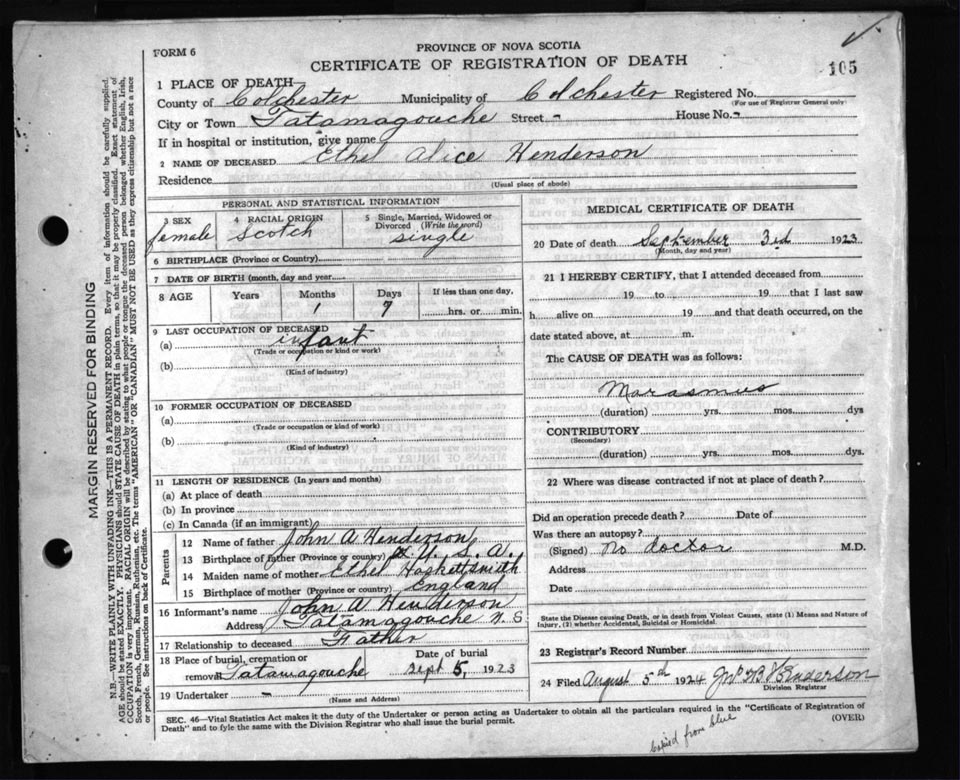 FORM 6
PROVINCE OF NOVA SCOTIA
CERTIFICATE OF REGISTRATION OF DEATH
105
1 PLACE OF DEATH
County of Colchester Municipality of Colchester Registered No.
(For use of Registrar General only)
City or Town Tatamagouche Street - House No. -
If in hospital or institution, give name
2 NAME OF DECEASED Ethel Alice Henderson
Residence
(Usual place of abode)
PERSONAL AND STATISTICAL INFORMATION
3 SEX female
4 RACIAL ORIGIN Scotch
5 Single, Married, Widowed or Divorced (Write the word) single
6 BIRTHPLACE (Province or Country)
7 DATE OF BIRTH (month, day and year)
8 AGE Years Months 1 Days 7 If less than one day, hrs. or min.
9 LAST OCCUPATION OF DECEASED
(a) infant
(Trade or occupation or kind or work)
(b)
(Kind of industry)
10 FORMER OCCUPATION OF DECEASED
(a)
(Trade or occupation or kind of work)
(b)
(Kind of industry)
11 LENGTH OF RESIDENCE (In years and months)
(a) At place of death
(b) In province
(c) In Canada (if an immigrant)
Parents
12 Name of father John A Henderson
13 Birthplace of father (Province or country) U. S. A.
14 Maiden name of mother Ethel Haskettsmith
15 Birthplace of mother (Province or country) England
16 Informant's name John A Henderson
Address Tatamagouche N. S
17 Relationship to deceased Father
18 Place of burial, cremation or removal Tatamagouche Date of burial Sept 5, 1923
19 Undertaker -
(Name and Address)
MEDICAL CERTIFICATE OF DEATH
20 Date of death September 3rd 1923
(Month, day and year)
21 I HEREBY CERTIFY, that I attended deceased from
19 to 19 that I last saw
h alive on 19 and that death occurred, on
date stated above, at m.
The CAUSE OF DEATH was as follows:
Marasmus
(duration) yrs. mos. dys
CONTRIBUTORY
(Secondary)
(duration) yrs. mos. dys.
22 Where was disease contracted if not at place of death?
Did an operation precede death? Date of
Was there an autopsy?
(Signed) No doctor M.D.
Address
Date
State the Disease causing Death, or in death from Violent Causes, state (1) Means and Nature of
Injury, (2) whether Accidental, Suicidal or Homicidal.
23 Registrar's Record Number
24 Filed August 5th 1924 Jno W B Henderson
Division Registrar
SEC. 46—Vital Statistics Act makes it the duty of the Undertaker or person acting as Undertaker to obtain all the particulars required in the "Certificate of Registration of
Death" and to fyle the same with the Division Registrar who shall issue the burial permit.
(OVER)
Copied from blue
MARGIN RESERVED FOR BINDING
N.B.—WRITE PLAINLY WITH UNFADING INK—THIS IS A PERMANENT RECORD. Every item of information should be carefully supplied.
AGE should be stated EXACTLY. PHYSICIANS should STATE CAUSE OF DEATH in plain terms, so that it may be properly classified. Exact statement of
OCCUPATION is very important. RACIAL ORIGIN will be described by stating to what people or tongue the deceased person belonged whether English, Irish,
Scotch, French, German, Russian, Ruthenian, etc. The terms "AMERICAN" OR "CANADIAN" MUST NOT BE USED as they express citizenship but not a race
or people. See instructions on back of Certificate.